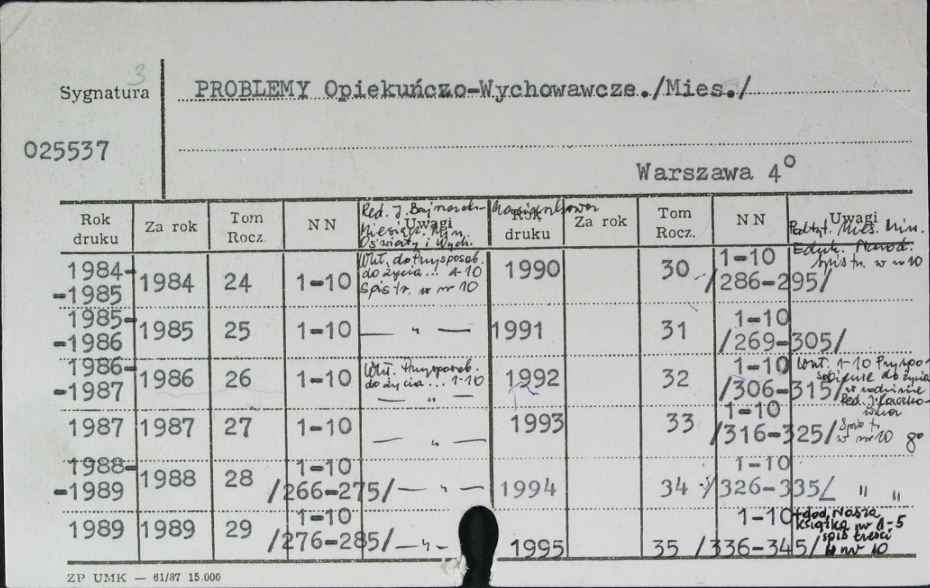 3
Sygnatura
PROBLEMY Opiekuńczo-Wychowawcze./Mies./
025537
Warszawa 4°
Red. J. Bajnarek-
Rok druku Za rok Tom Rocz. NN Uwagi Rok druku Za rok Tom Rocz. NN Uwagi
Miesięcz. Min.
Oświaty i Wych.
Podtyt. Mies. Min.
Eduk. Narod.
Spis tr. w nr 10
1984-1985 1984 24 1-10 Wkł. do Przysposob. do życia... 1-10 Spis tr. w nr 10
1990 30 1-10 /286-295/
1985-1986 1985 25 1-10 — " —
1991 31 1-10 /269-305/
1986-1987 1986 26 1-10 Wkł. Przysposob. do życia... 1-10 — " —
1992 32 1-10 /306-315/ Wkł. 1-10 Przysposobienie do życia w rodzinie Red. J.
1987 1987 27 1-10 — " —
1993 33 1-10 /316-325/ Spis tr. w nr 10 8°
1988-1989 1988 28 1-10 /266-275/ — " —
1994 34 1-10 /326-335/ " "
1989 1989 29 1-10 /276-285/ — " —
1995 35 1-10 /336-345/ +dod. Nasza książka nr 1-5 spis treści w nr 10
ZP UMK — 61/87 15.000